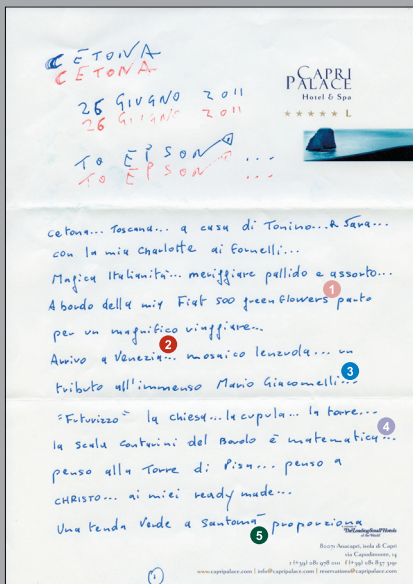 CETONA
CETONA
26 GIUGNO 2011
26 GIUGNO 2011
TO EPSON ...
TO EPSON ...
CAPRI
PALACE
Hotel & Spa
★★★★★ L
Cetona... Toscana... a casa di Tonino... & Sara...
con la mia Charlotte ai fornelli...
Magica Italianità... meriggiare pallido e assorto...
1
A bordo della mia Fiat 500 green flowers parto
per un magnifico viaggiare...
2
Arrivo a Venezia... mosaico lenzuola... un
3
tributo all'immenso Mario Giacomelli...
"Futurizzo" la chiesa... la cupula... la torre...
4
la scala Contarini del Bovolo è matematica...
penso alla Torre di Pisa... penso a
CHRISTO... ai miei ready made...
Una tenda verde a Santomà proporziona
5
The Leading Small Hotels
of the World
80071 Anacapri, isola di Capri
via Capodimonte, 14
t (+39) 081 978 0111 f (+39) 081 837 3191
www.capripalace.com | info@capripalace.com | reservations@capripalace.com